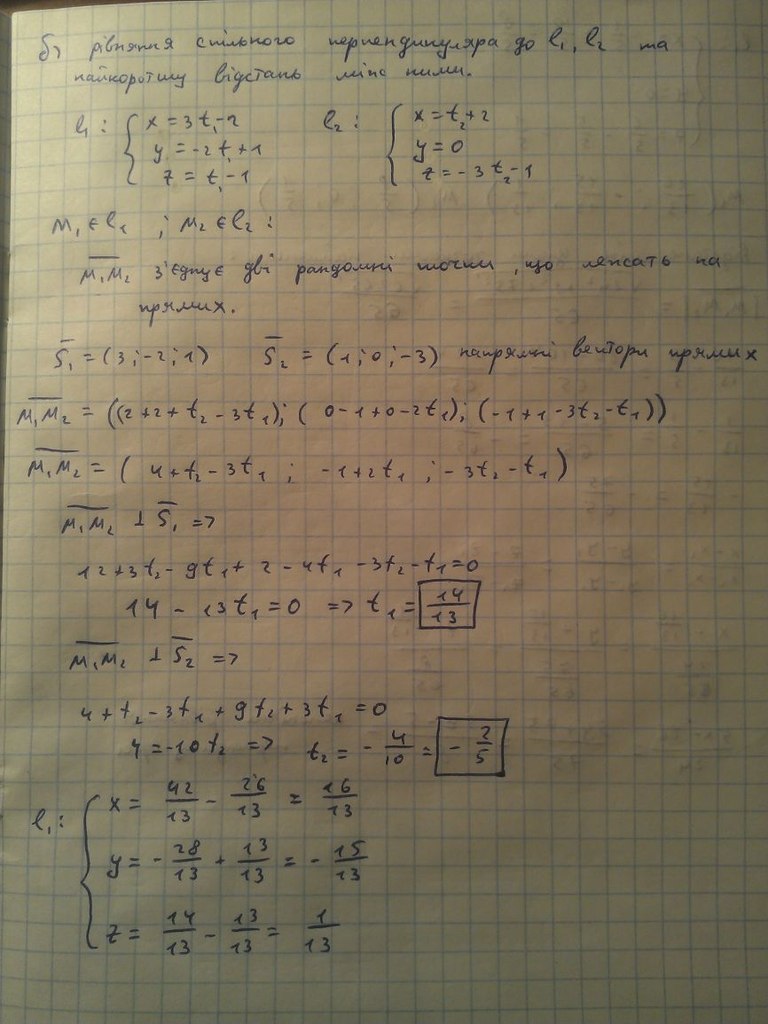 б) рівняння спільного перпендикуляра до l₁, l₂ та
найкоротшу відстань між ними.
l₁: { x = 3t₁-2 l₂: { x = t₂+2
y = -2t₁+1 y = 0
z = t₁-1 z = -3t₂-1
M₁ ∈ l₁ ; M₂ ∈ l₂ :
M₁M₂ з'єднує дві рандомні точки, що лежать на
прямих.
S₁ = (3;-2;1) S₂ = (1;0;-3) напрямні вектори прямих
M₁M₂ = ((2+2+t₂-3t₁); (0-1+0-2t₁); (-1+1-3t₂-t₁))
M₁M₂ = (4+t₂-3t₁ ; -1+2t₁ ; -3t₂-t₁)
M₁M₂ ⊥ S₁ =>
12+3t₂-9t₁+2-4t₁-3t₂-t₁=0
14 - 13t₁ = 0 => t₁ = 14/13
M₁M₂ ⊥ S₂ =>
4+t₂-3t₁+9t₂+3t₁=0
4=-10t₂ => t₂ = -4/10 = -2/5
l₁: { x = 42/13 - 26/13 = 16/13
y = -28/13 + 13/13 = -15/13
z = 14/13 - 13/13 = 1/13